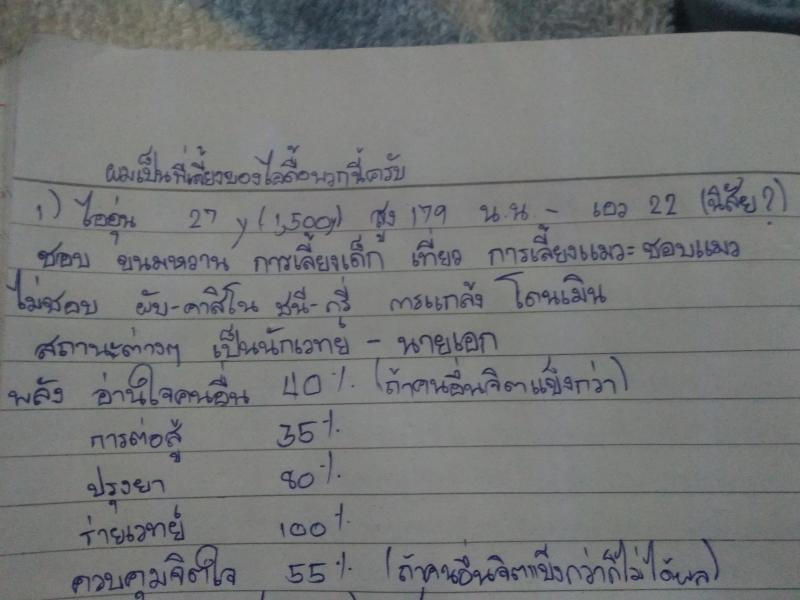 ผมเป็นพี่เลี้ยงของไลดื้อพวกนี้ครับ
1) ไออุ่น 27 y (1,500y) สูง 179 น.น. - เอว 22 (นิสัย?)
ชอบ ขนมหวาน การเลี้ยงเด็ก เที่ยว การเลี้ยงแมว = ชอบแมว
ไม่ชอบ ผับ-คาสิโน ชนี-กรี่ การแกล้ง โดนเมิน
สถานะต่างๆ เป็นนักเวทย์ - นายเอก
พลัง อ่านใจคนอื่น 40% (ถ้าคนอื่นจิตแข็งกว่า)
การต่อสู้ 35%
ปรุงยา 80%
ร่ายเวทย์ 100%
ควบคุมจิตใจ 55% (ถ้าคนอื่นจิตแข็งกว่าก็ไม่ได้ผล)